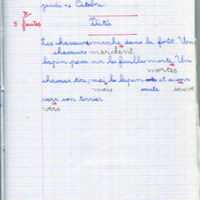 jeudi Octobre
Dictée
5 fautes
Les chasseurs marche dans la forêt. Un
chasseurs marchent
lapin passe sur les feuilles morte. Un
mortes
chasseur tire, mai le lapin et
mais saute sauve
vers son terrier.
vers